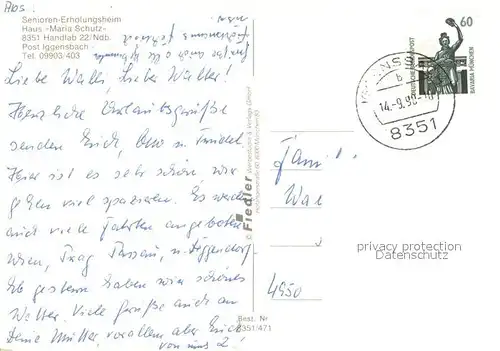 Abs.
Senioren-Erholungsheim
Haus »Maria Schutz«
8351 Handlab 22/Ndb.
Post Iggensbach
Tel. 09903/403
Liebe Walli, Lieber Walter!
Herzliche Urlaubsgrüße
senden Euch, Omo u. Friedel.
Hier ist es sehr schön, wir
gehen viel spazieren. Es werden
auch viele Fahrten angeboten
Wien, Prag Passau, u. Deggendorf.
Ab gestern haben wir schönes
Wetter. Viele Grüße auch an
Deine Mutter vor allem aber Euch
von uns 2!
© Fiedler
Best. Nr.
8351/471
60
DEUTSCHE BUNDESPOST
BAVARIA MÜNCHEN
b
14.-9.90-
8351
Fami
Wal
4950
privacy protection
Datenschutz